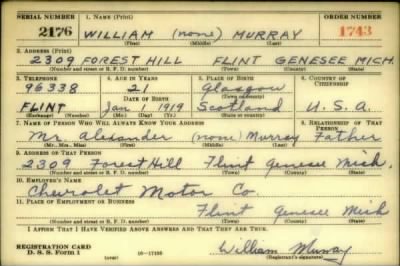 SERIAL NUMBER 1. NAME (Print) ORDER NUMBER
2176 WILLIAM (none) MURRAY 1743
(First) (Middle) (Last)
2. ADDRESS (Print)
2309 FOREST HILL FLINT GENESEE MICH.
(Number and street or R. F. D. number) (Town) (County) (State)
3. TELEPHONE 4. AGE IN YEARS 5. PLACE OF BIRTH 6. COUNTRY OF CITIZENSHIP
96338 21 Glasgow
DATE OF BIRTH (Town or county)
FLINT Jan 1 1919 Scotland U.S.A.
(Exchange) (Number) (Mo.) (Day) (Yr.) (State or country)
7. NAME OF PERSON WHO WILL ALWAYS KNOW YOUR ADDRESS 8. RELATIONSHIP OF THAT PERSON
Mr Alexander (none) Murray Father
(Mr., Mrs., Miss) (First) (Middle) (Last)
9. ADDRESS OF THAT PERSON
2309 Forest Hill Flint Genesee Mich.
(Number and street or R. F. D. number) (Town) (County) (State)
10. EMPLOYER'S NAME
Chevrolet Motor Co
11. PLACE OF EMPLOYMENT OR BUSINESS
Flint Genesee Mich
(Number and street or R. F. D. number) (Town) (County) (State)
I AFFIRM THAT I HAVE VERIFIED ABOVE ANSWERS AND THAT THEY ARE TRUE.
REGISTRATION CARD
D. S. S. Form 1 (over) William Murray
(Registrant's signature)